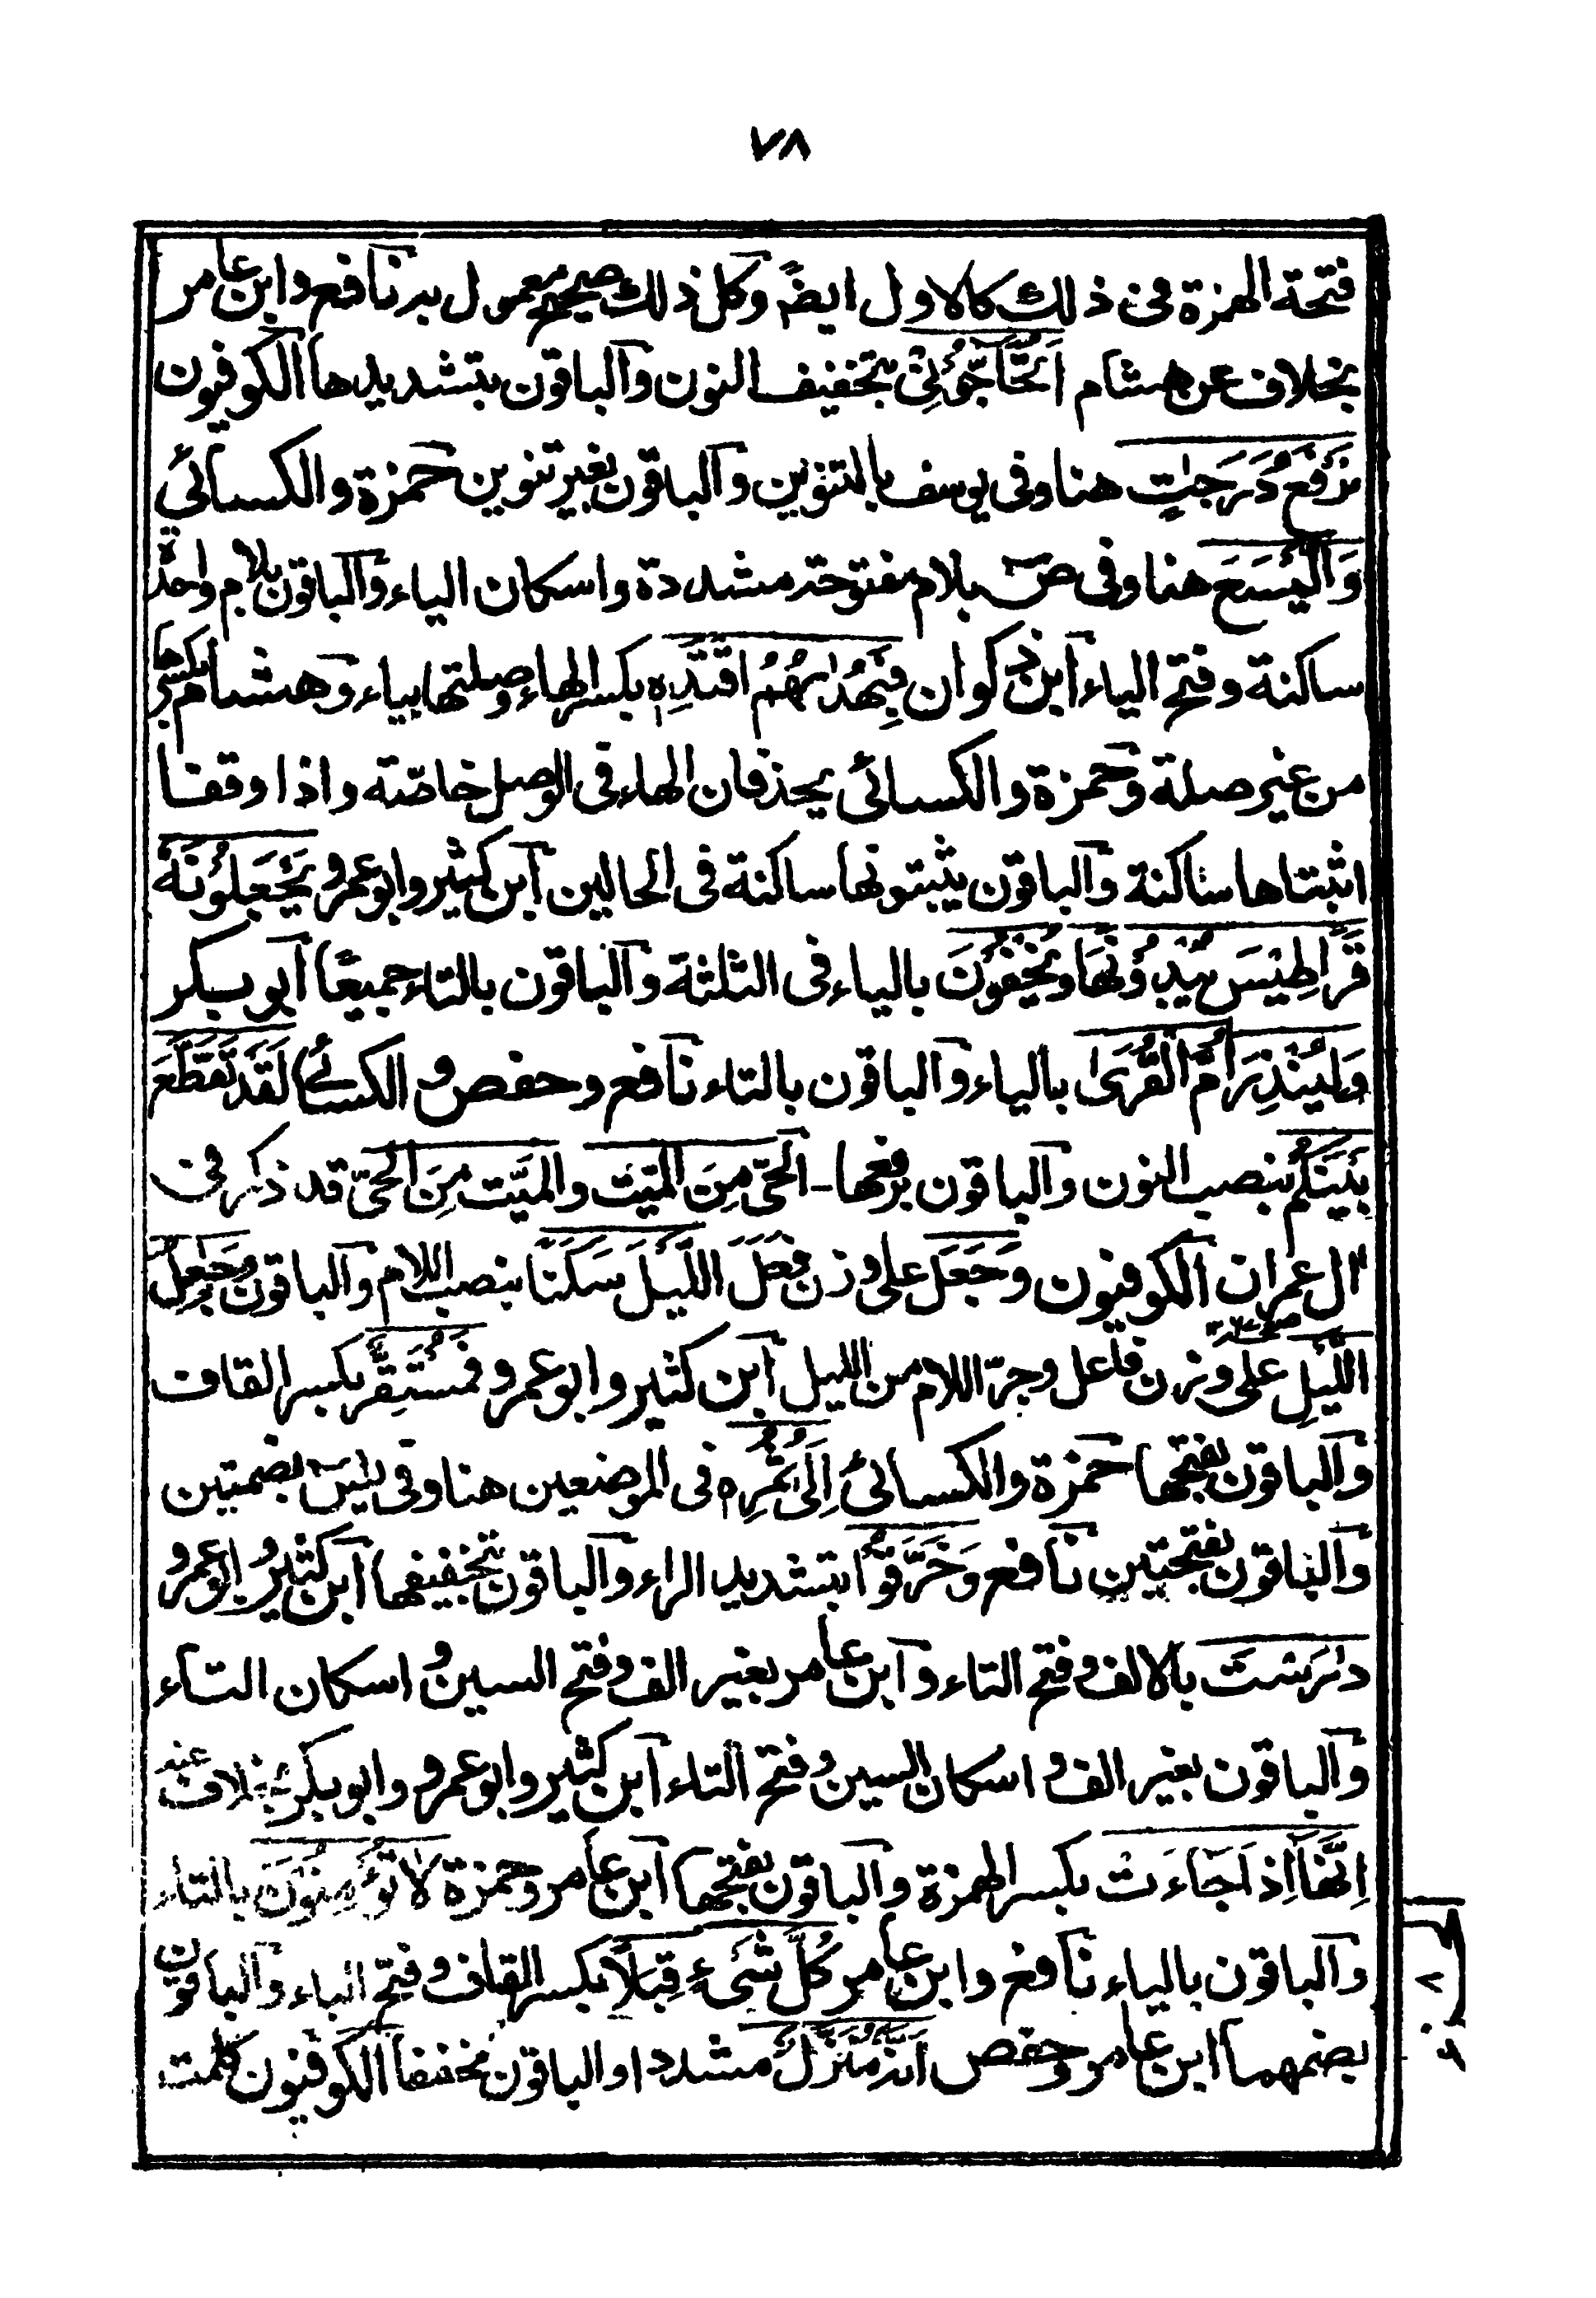 ٧٨
فتحة الهمزة فى ذلك كالاول ايضًا وكل ذلك صحيح معمول به نافع وابن عامر
بخلاف عن هشام اَتُحَاجُّوْنِىْ بتخفيف النون والباقون بتشديدها الكوفيون
نَرْفَعُ دَرَجٰتٍ هنا وفى يوسف بالتنوين والباقون بغير تنوين حمزة والكسائى
وَالَّيْسَعَ هنا وفى صٓ بلام مفتوحة مشددة واسكان الياء والباقون بلام واحدة
ساكنة وفتح الياء ابن ذكوان فَبِهُدٰىهُمُ اقْتَدِهٖ بكسر الهاء وصلتها بياء وهشام بكسرها
من غير صلة وحمزة والكسائى يحذفان الهاء فى الوصل خاصّة واذا وقفا
اثبتاها ساكنة والباقون يثبتونها ساكنة فى الحالين ابن كثير وابو عمرو يَجْعَلُوْنَهٗ
قَرَاطِيْسَ يُبْدُوْنَهَا وَيُخْفُوْنَ بالياء فى الثلثة والباقون بالتاء جميعًا ابو بكر
وَلِيُنْذِرَ اُمَّ الْقُرٰى بالياء والباقون بالتاء نافع وحفص و الكسائى لَقَدْ تَقَطَّعَ
بَيْنَكُمْ بنصب النون والباقون برفعها - الحَىّ مِنَ المَيِّتِ والمَيِّت مِنَ الحَىّ قد ذكر فى
اٰل عمران الكوفيون وَجَعَلَ على وزن فَعَلَ اللَّيْلَ سَكَنًا بنصب اللام والباقون وجٰعِلُ
اللَّيْلِ على وزن فاعل وجرّ اللام من الليل ابن كثير وابو عمرو فَمُسْتَقِرٌّ بكسر القاف
والباقون بفتحها حمزة والكسائى اِلٰى ثُمُرِهٖ فى الموضعين هنا وفى يٰسٓ بضمتين
والباقون بفتحتين نافع وَخَرَّقُوْا بتشديد الراء والباقون بتخفيفها ابن كثير وابو عمرو
دٰرَسْتَ بالالف وفتح التاء وابن عامر بغير الف وفتح السين و اسكان التاء
والباقون بغير الف و اسكان السين وفتح التاء ابن كثير وابو عمرو وابو بكر بخلاف عنه
اِنَّهَا اِذَا جَاءَتْ بكسر الهمزة والباقون بفتحها ابن عامر وحمزة لَا تُؤْمِنُوْنَ بالتاء
والباقون بالياء نافع وابن عامر كُلَّ شَىْءٍ قِبَلًا بكسر القاف و فتح الباء والباقون
بضمهما ابن عامر وحفص اَنَّهٗ مُنَزَّلٌ مشددا والباقون مخففا الكوفيون كلمت